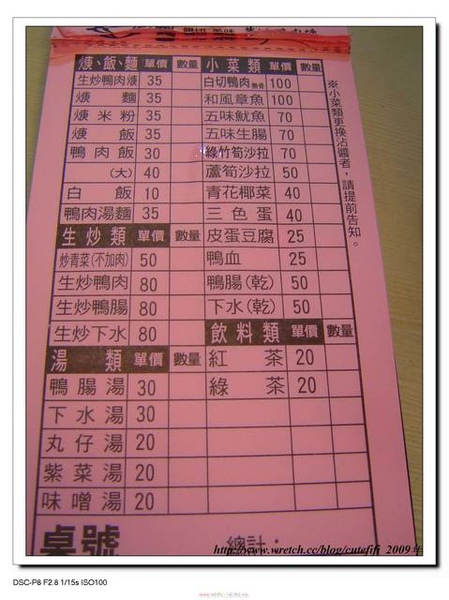 焿、飯、麵 單價 數量
生炒鴨肉焿 35
焿麵 35
焿米粉 35
焿飯 35
鴨肉飯 30
(大) 40
白飯 10
鴨肉湯麵 35
生炒類 單價 數量
炒青菜(不加肉) 50
生炒鴨肉 80
生炒鴨腸 80
生炒下水 80
湯類 單價 數量
鴨腸湯 30
下水湯 30
丸仔湯 20
紫菜湯 20
味噌湯 20
小菜類 單價 數量
白切鴨肉 100
和風章魚 100
五味魷魚 70
五味生腸 70
綠竹筍沙拉 70
蘆筍沙拉 50
青花椰菜 40
三色蛋 40
皮蛋豆腐 25
鴨血 25
鴨腸(乾) 50
下水(乾) 50
飲料類 單價 數量
紅茶 20
綠茶 20
※小菜類更換沾醬者，請提前告知。
桌號
總計：
http://www.wretch.cc/blog/cutefifi 2009年
DSC-P8 F2.8 1/15s ISO100